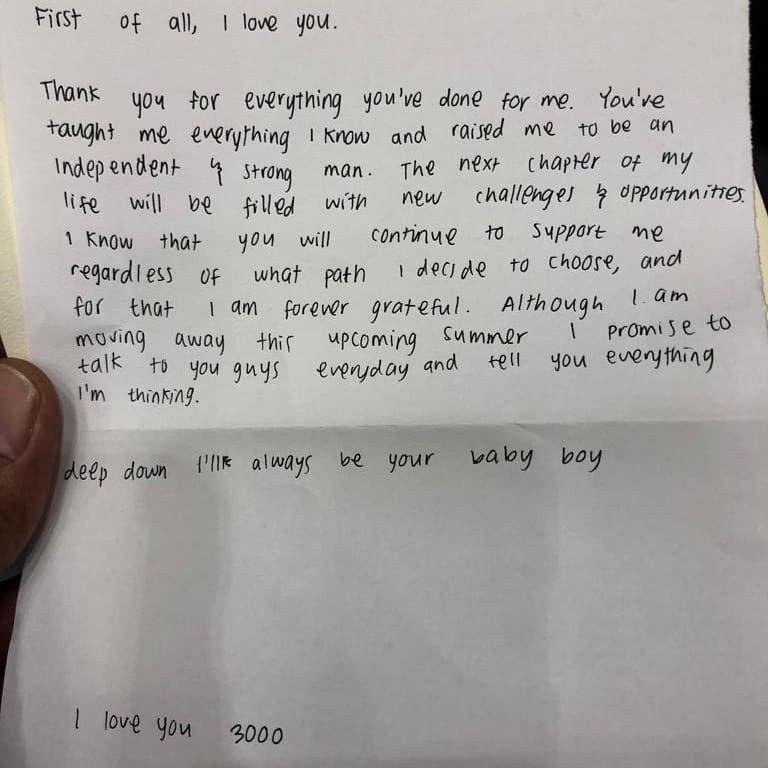 First of all, I love you.
Thank you for everything you've done for me. You've
taught me everything I know and raised me to be an
independent & strong man. The next chapter of my
life will be filled with new challenges & opportunities.
I know that you will continue to support me
regardless of what path I decide to choose, and
for that I am forever grateful. Although I am
moving away this upcoming summer I promise to
talk to you guys everyday and tell you everything
I'm thinking.
deep down I'll always be your baby boy
I love you 3000